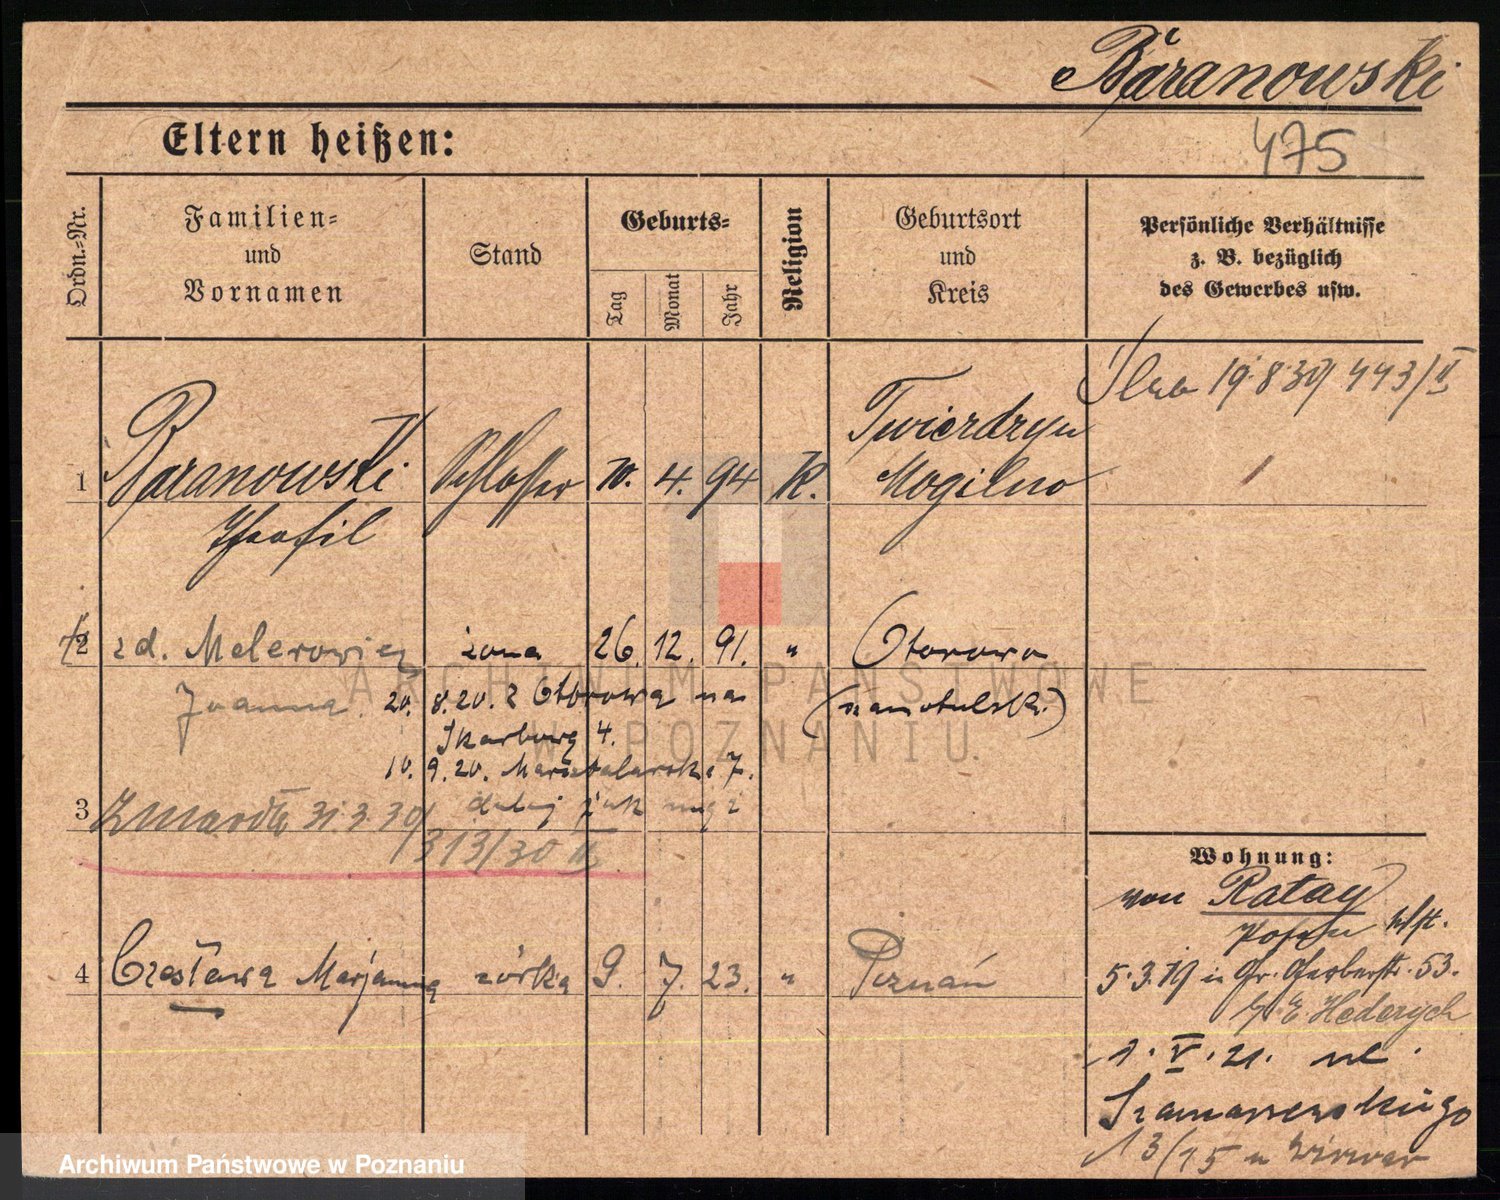 Baranowski
475
Eltern heißen:
Ordn.-Nr.
Familien-
und
Vornamen
Stand
Geburts-
Tag
Monat
Jahr
Religion
Geburtsort
und
Kreis
Persönliche Verhältnisse
z. B. bezüglich
des Gewerbes usw.
19.8.39 443/II
1 Baranowski Schlosser 10. 4. 94 K. Twierdzyn
Mogilno
Theofil
2 zd. Melerowicz żona 26. 12. 91. " Otorowo
Joanna. 20. 8.20. z Otorowa na (szamotulski)
Skarbową 4.
10. 9.20. Marsztalarska 7.
dalej jak mąż
3 Zmarła 31.3.30
313/30 II
4 Czesława Marjanna córka 9. 7. 23. " Poznań
Wohnung:
von Ratay
Posen
5.3.19 Gr. Gerberstr. 53.
b/ Hederych
1.V.21. ul.
Szamarzewskiego
13/15
ARCHIWUM PAŃSTWOWE
W POZNANIU
Archiwum Państwowe w Poznaniu